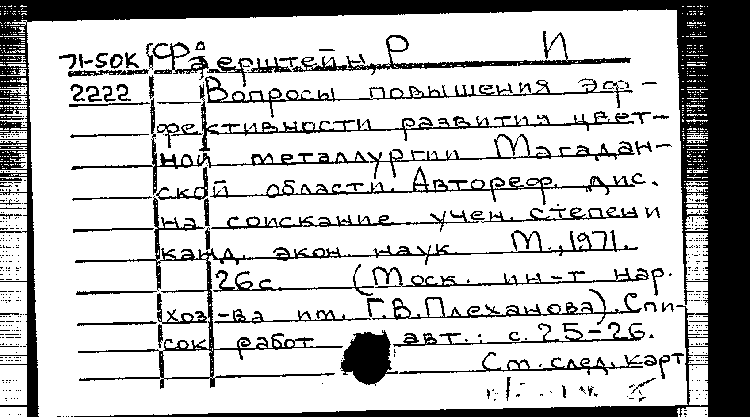 71-50К Фаерштейн, Р И
2222 Вопросы повышения эф-
фективности развития цвет-
ной металлургии Магадан-
ской области. Автореф. дис.
на соискание учен. степени
канд. экон. наук М., 1971.
26с. (Моск. ин-т нар.
хоз-ва им. Г.В.Плеханова). Спи-
сок работ авт.: с. 25-26.
См. след. карт